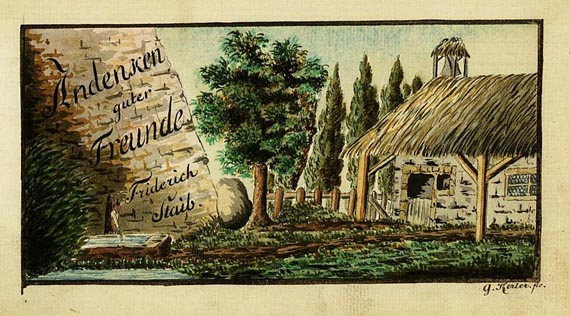 Andenken
guter
Freunde.
Friderich
Staib.
G. Kerler. fec.